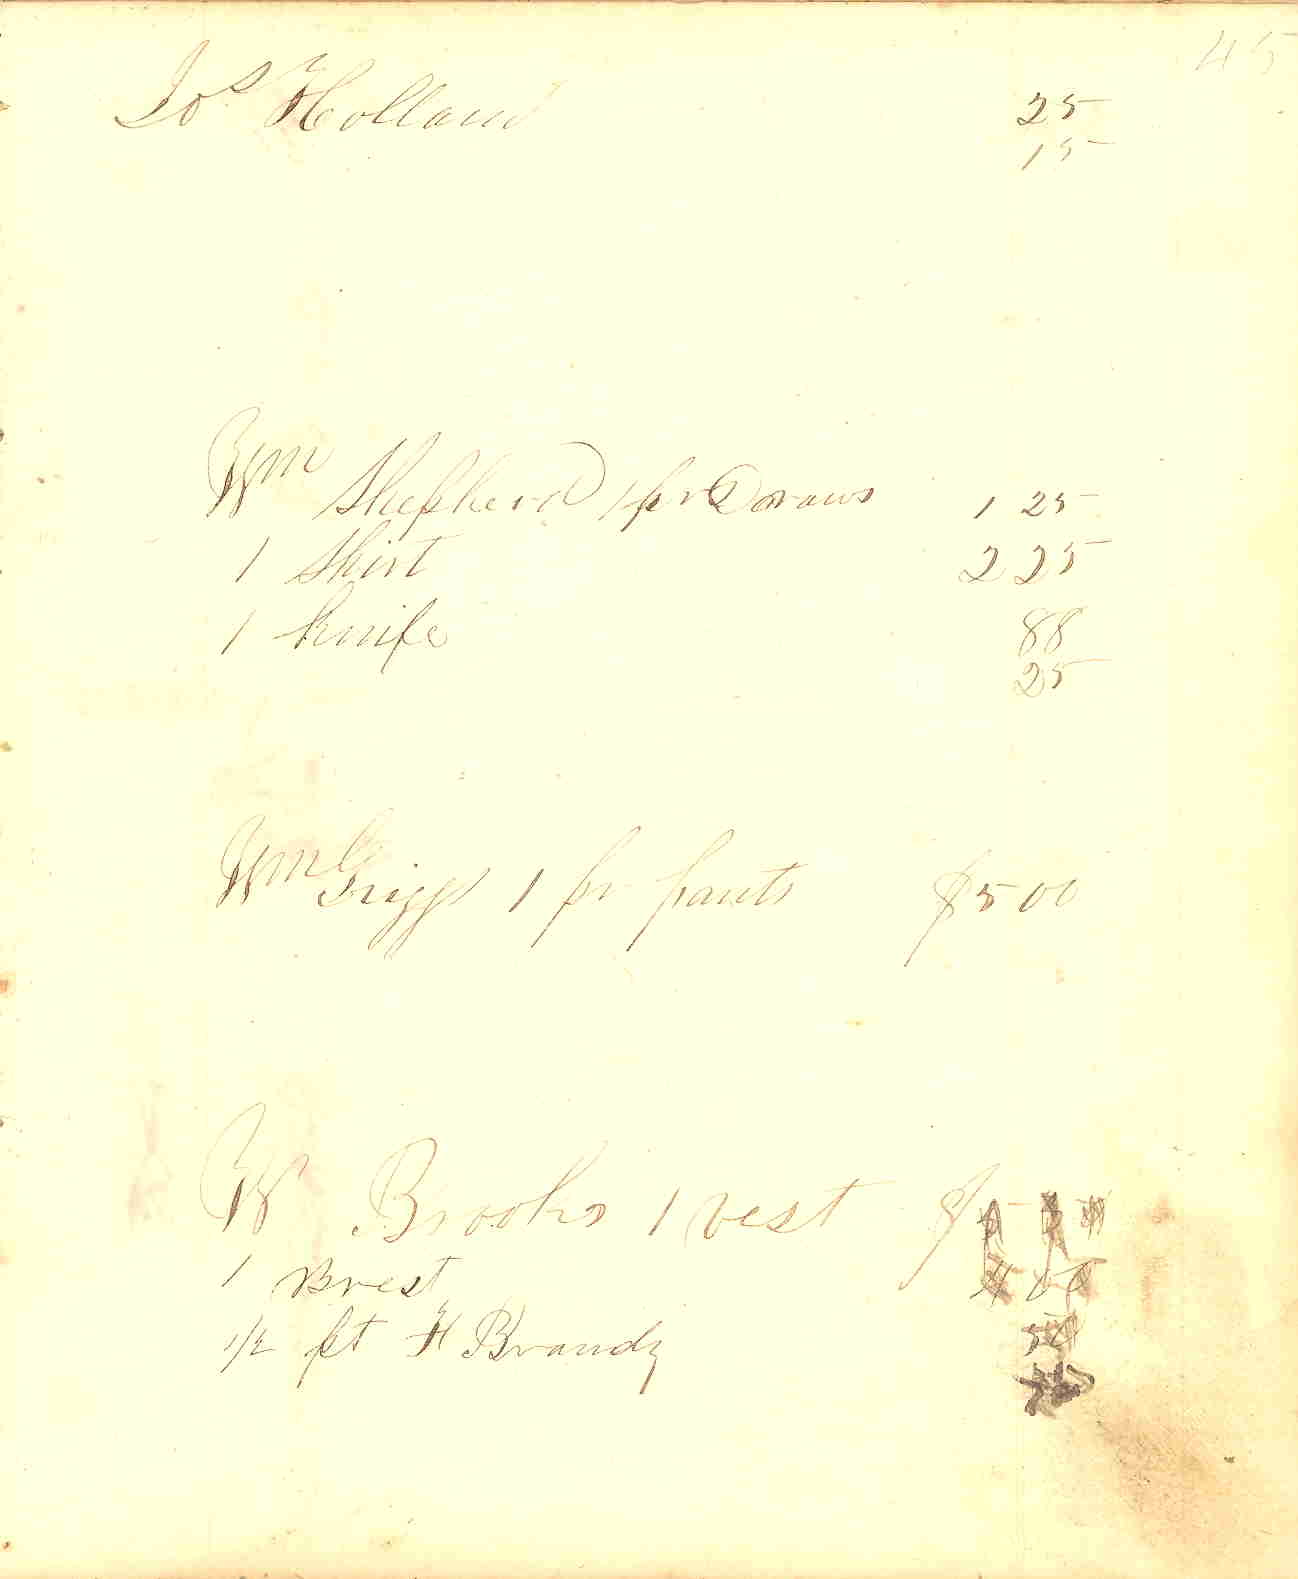 45
Jos Holland 25
15
Wm Shepherd 1 pr Draws 1 25
1 Shirt 2 25
1 Knife 88
25
Wm Griggs 1 pr pants $5 00
W Brooks 1 vest $5
1 Brest
1/2 pt F Brandy 50